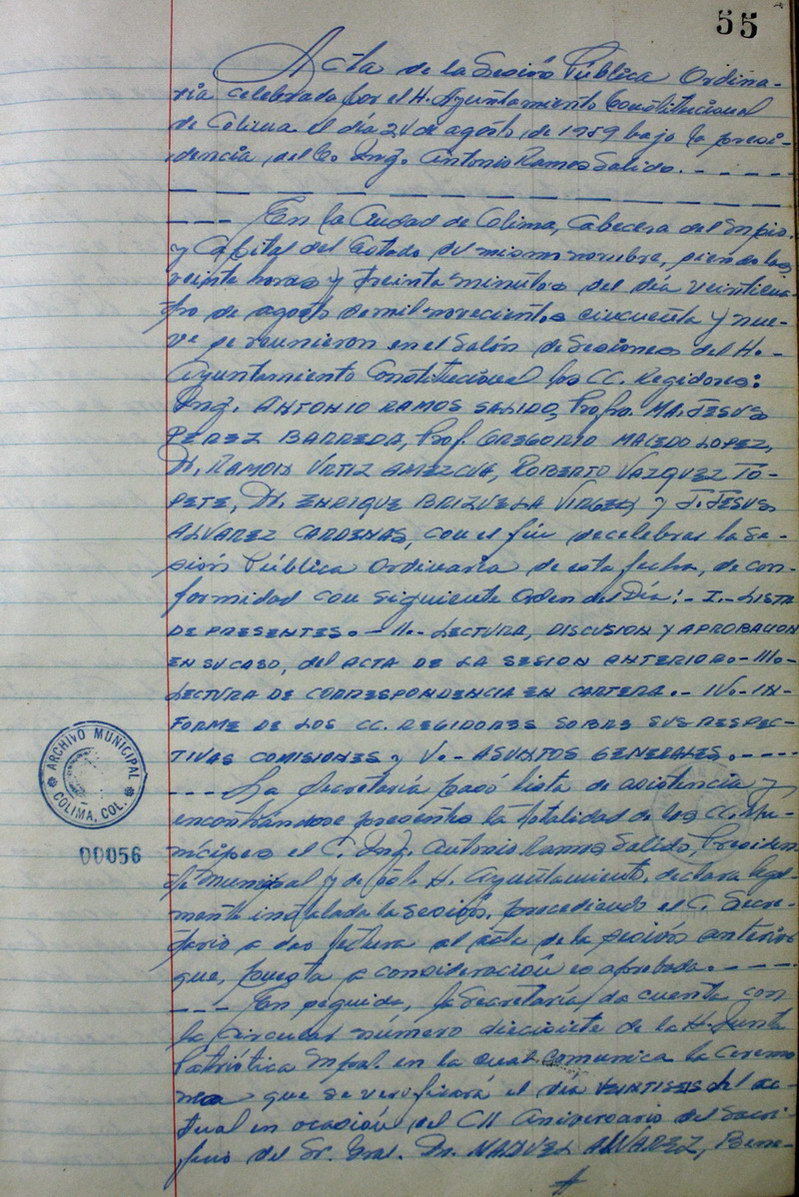 55
Acta de la Sesión Pública Ordina-
ria celebrada por el H. Ayuntamiento Constitucional
de Colima el día 24 de agosto de 1959 bajo la presi-
dencia del C. Ing. Antonio Ramos Salido. - - - - -
- - - En la Ciudad de Colima, Cabecera del Mpio.
y Capital del Estado del mismo nombre, siendo las
veinte horas y treinta minutos del día veinticua-
tro de agosto de mil novecientos cincuenta y nue-
ve se reunieron en el Salón de Sesiones del H.-
Ayuntamiento Constitucional los CC. Regidores:
Ing. ANTONIO RAMOS SALIDO, Profra. MA. JESUS
PEREZ BARREDA, Prof. GREGORIO MACEDO LOPEZ,
Dr. RAMON URTIZ AMEZCUA, ROBERTO VAZQUEZ TO-
PETE, Dr. ENRIQUE BRIZUELA VIRGEN y J. JESUS
ALVAREZ CARDENAS, con el fin de celebrar la Se-
sión Pública Ordinaria de esta fecha, de con-
formidad con siguiente Orden del Día:- I.- LISTA
DE PRESENTES.- II.- LECTURA, DISCUSION Y APROBACION
EN SU CASO, del ACTA DE LA SESION ANTERIOR.- III.-
LECTURA DE CORRESPONDENCIA EN CARTERA.- IV.- IN-
FORME DE LOS CC. REGIDORES SOBRE SUS RESPEC-
TIVAS COMISIONES y V.- ASUNTOS GENERALES.- - - -
- - - La Secretaría pasó lista de asistencia y
encontrándose presentes la totalidad de los CC. Mu-
nícipes el C. Ing. Antonio Ramos Salido, Presiden
te Municipal y de este H. Ayuntamiento, declara legal-
mente instalada la sesión, procediendo el C. Secre-
tario a dar lectura al acta de la sesión anterior
que, puesta a consideración es aprobada.- - - -
- - - En seguida, la Secretaría da cuenta con
la Circular número diecisiete de la H. Junta
Patriótica Mpal. en la cual comunica la Ceremo
nia que se verificará el día VEINTISEIS del ac-
tual en ocasión del CII Aniversario del Sacri-
ficio del Sr. Gral. Dn. MANUEL ALVAREZ, Bene-
ARCHIVO MUNICIPAL
COLIMA, COL.
00056